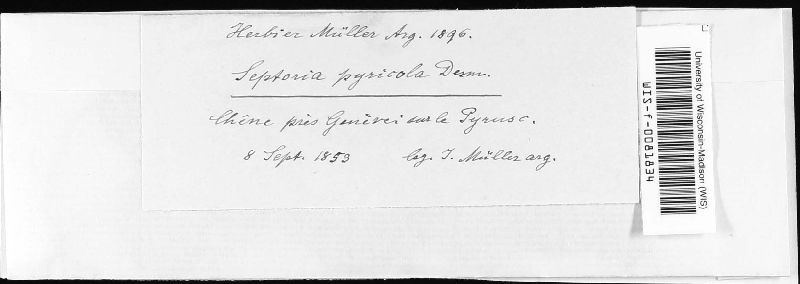 Herbier Müller Arg. 1896.
Septoria pyricola Desm.
Chêne près Genève sur le Pyrus c.
8 Sept. 1853 leg. J. Müller arg.
University of Wisconsin-Madison (WIS)
WIS-f-0081834